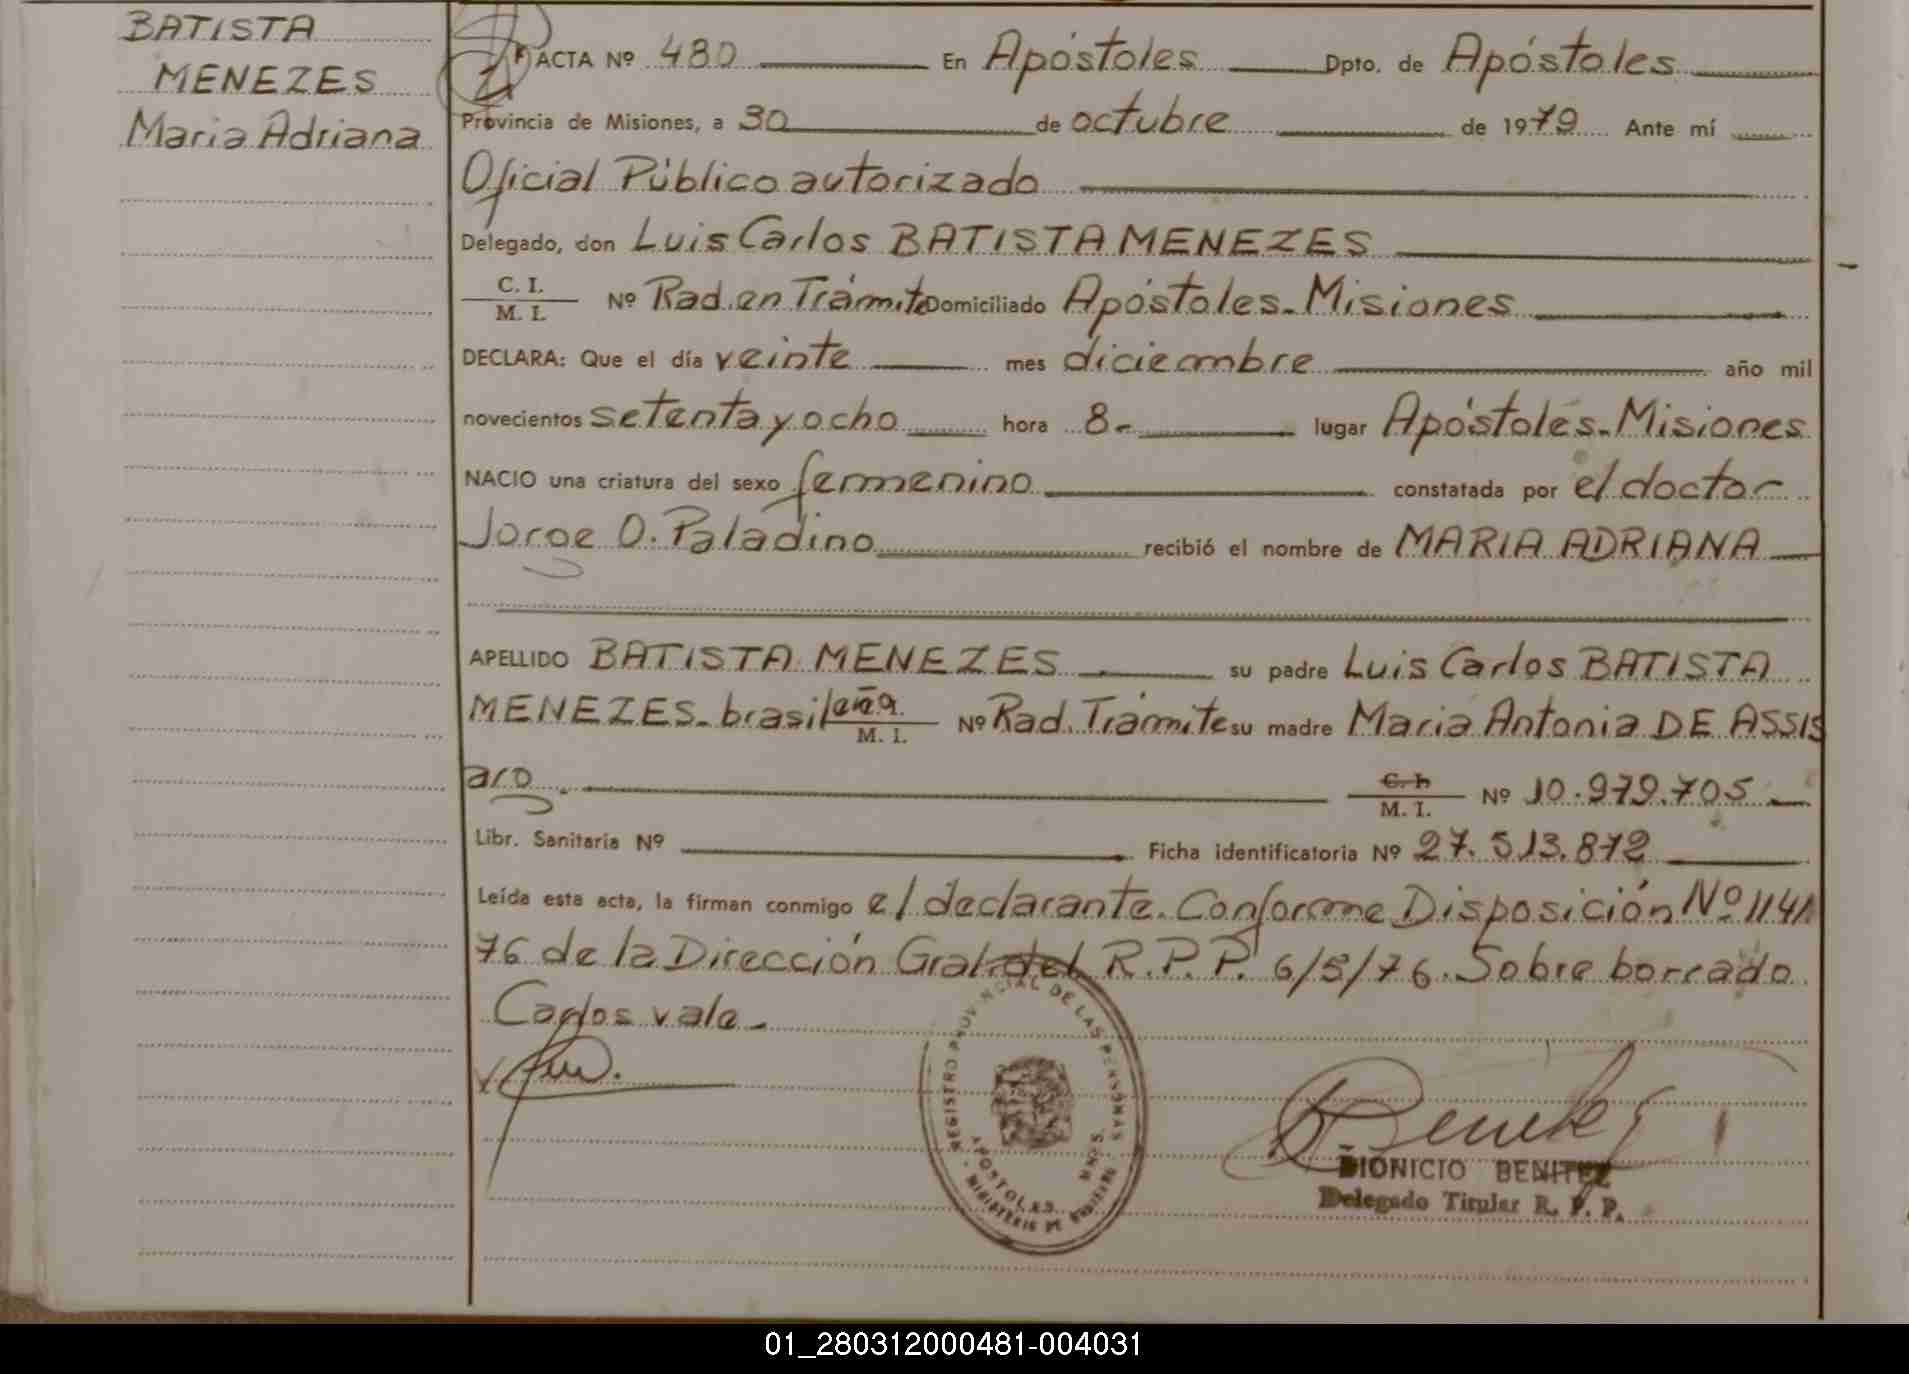 BATISTA
MENEZES
Maria Adriana
ACTA Nº 480 En Apóstoles Dpto. de Apóstoles
Provincia de Misiones, a 30 de octubre de 1979 Ante mí
Oficial Público autorizado
Delegado, don Luis Carlos BATISTA MENEZES
C. I.
M. I. Nº Rad. en Trámite Domiciliado Apóstoles - Misiones
DECLARA: Que el día veinte mes diciembre año mil
novecientos setenta y ocho hora 8- lugar Apóstoles - Misiones
NACIO una criatura del sexo femenino constatada por el doctor
Jorge O. Paladino recibió el nombre de MARIA ADRIANA
APELLIDO BATISTA MENEZES su padre Luis Carlos BATISTA
MENEZES - brasileña M. I. Nº Rad. Trámite su madre Maria Antonia DE ASSIS
aro
C. I.
M. I. Nº 10.979.705
Libr. Sanitaria Nº Ficha identificatoria Nº 27.513.872
Leída esta acta, la firman conmigo el declarante. Conforme Disposición Nº 114/
76 de la Dirección Gral. del R.P.P. 6/5/76. Sobre borrado
Carlos vale -
REGISTRO PROVINCIAL DE LAS PERSONAS
APOSTOLES MNES.
MINISTERIO DE GOBIERNO
DIONICIO BENITEZ
Delegado Titular R. P. P.
01_280312000481-004031